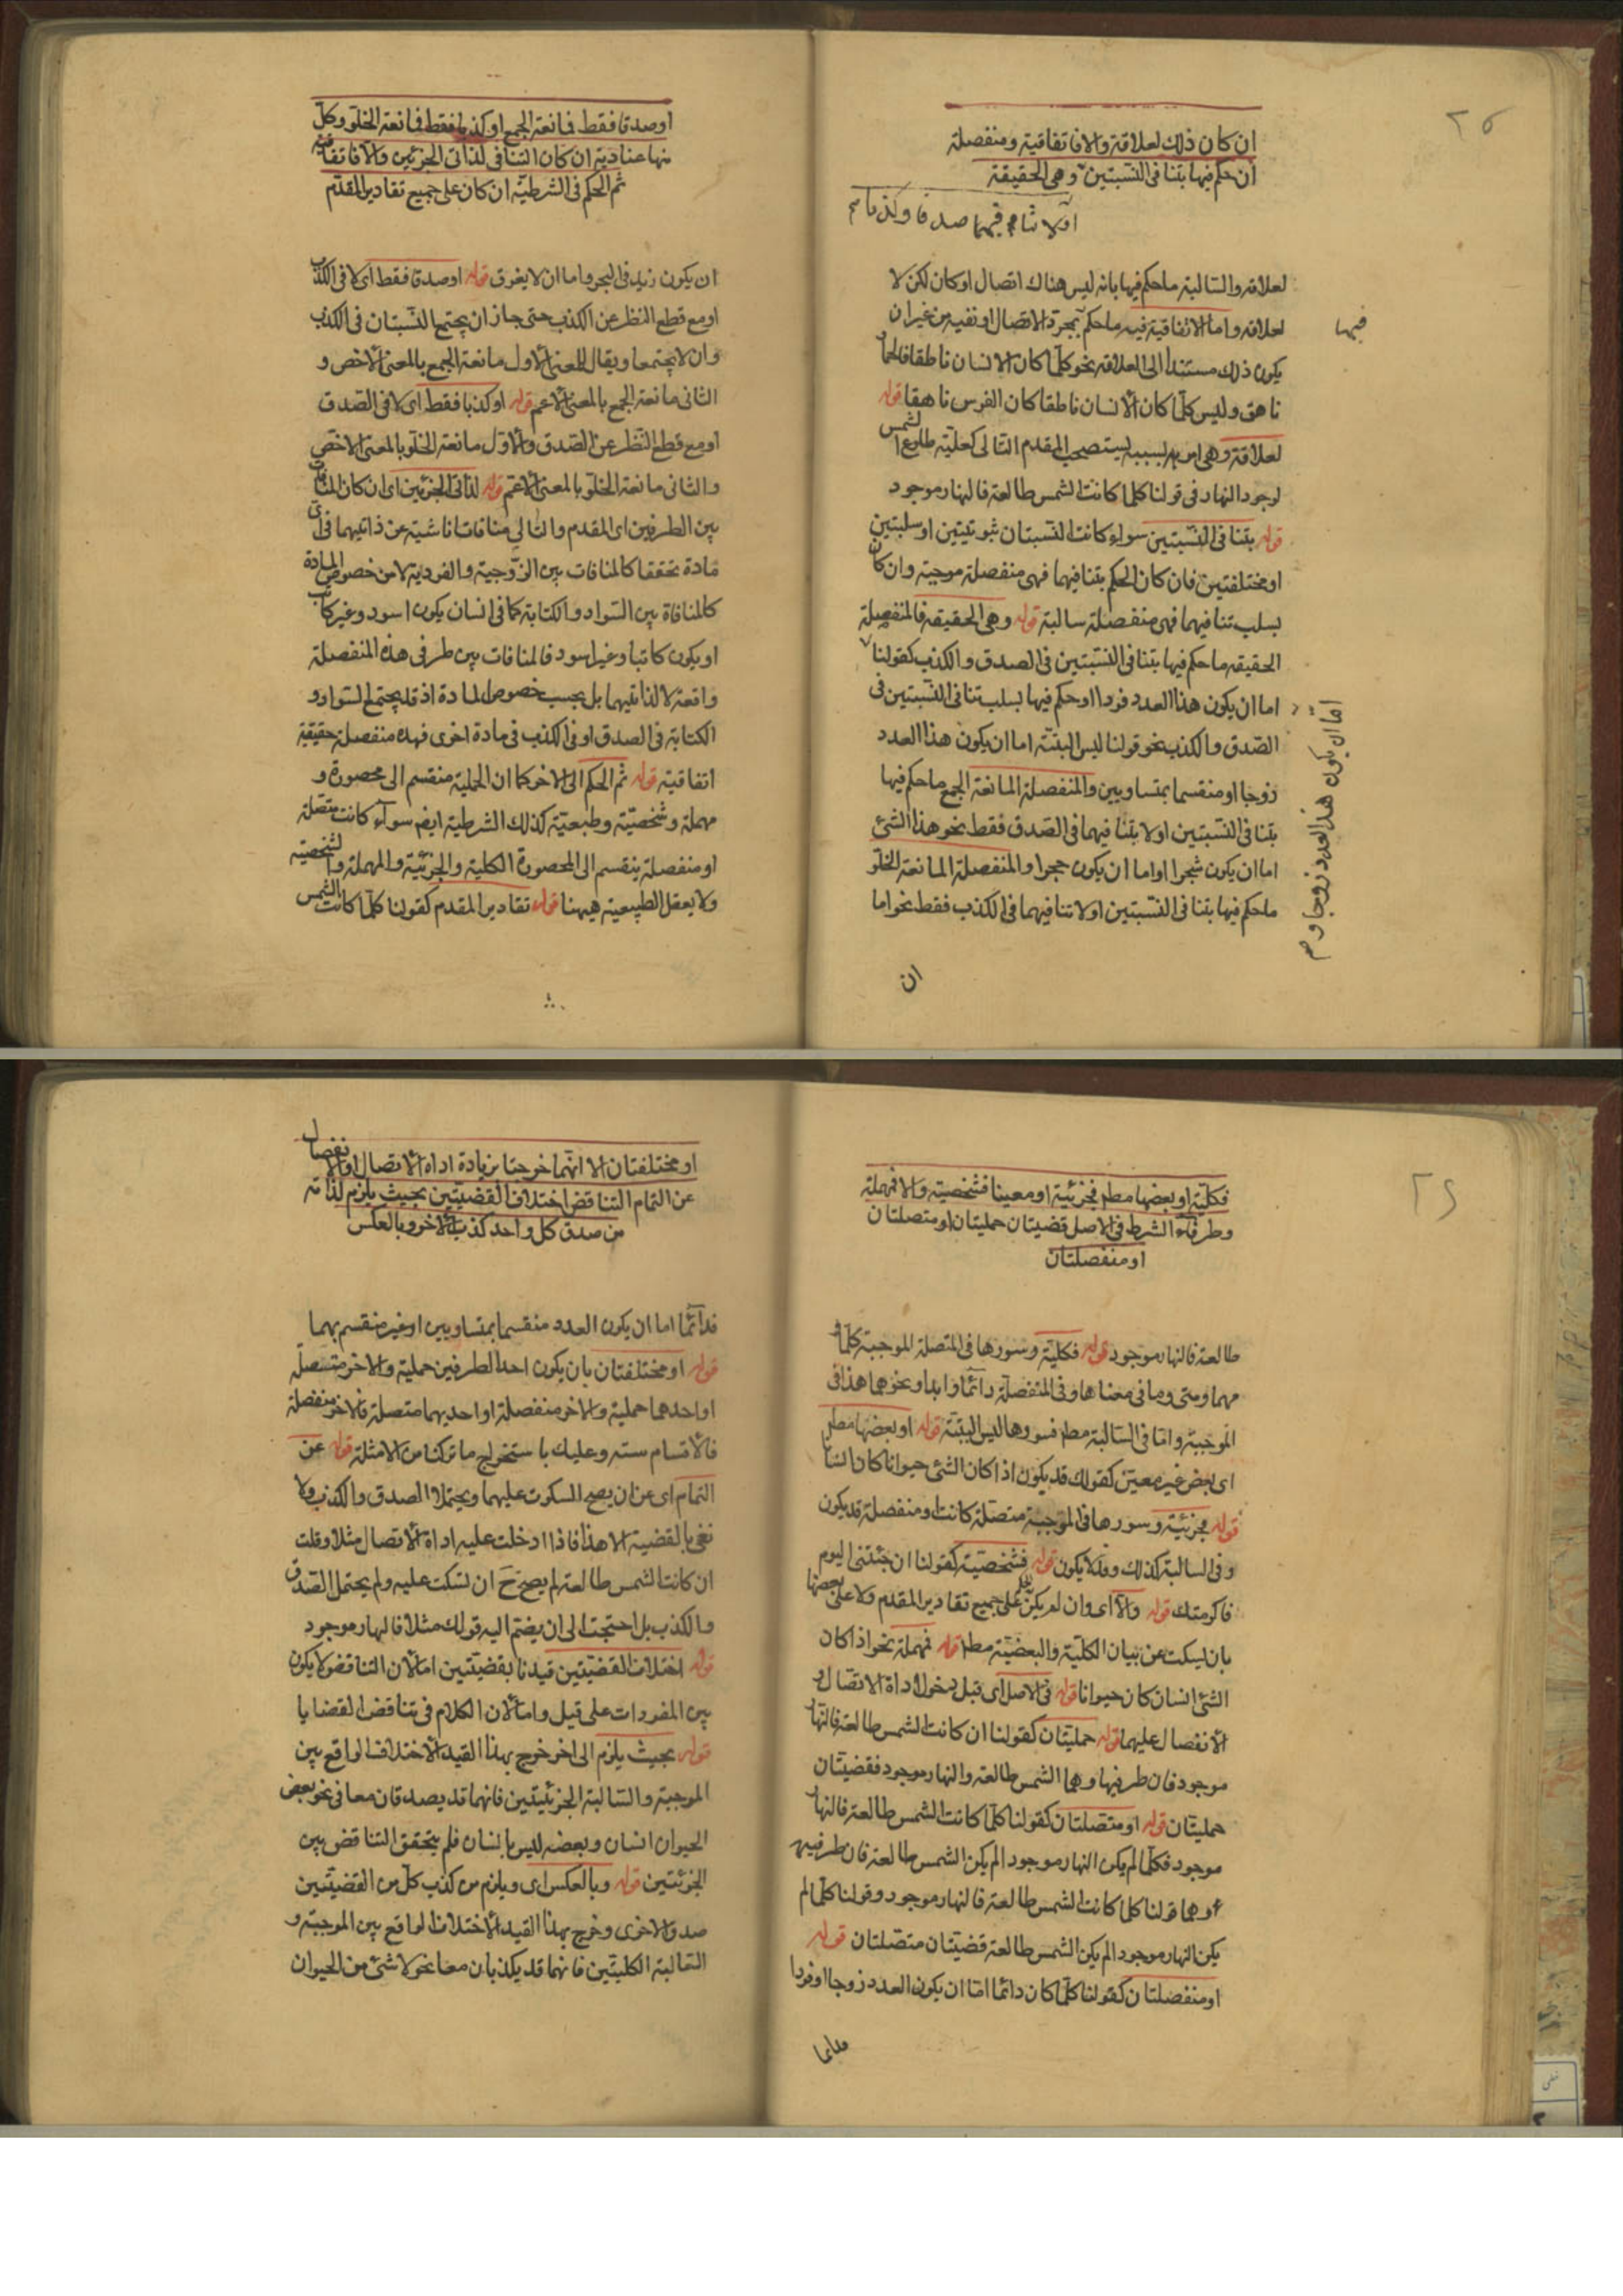 ٢٥
ان كان ذلك لعلاقة والا فاتفاقية ومنفصلة
ان حكم فيها بتنافى النسبتين وهى الحقيقة
او لا تنافيهما صدقا وكذبا
لعلاقه والسالبة ما حكم فيها بانه ليس هناك اتصال او كان لكن لا
لعلاقه واما الاتفاقية فيه ما حكم بمجرد الاتصال او نفيه من غير ان
فيها
يكون ذلك مستندا الى العلاقه نحو كلما كان الانسان ناطقا فالحمار
ناهق وليس كلما كان الانسان ناطقا كان الفرس ناهقا قوله
لعلاقة وهى امر به بسببه يستصحب المقدم التالى كعلية طلوع الشمس
لوجود النهار فى قولنا كلما كانت الشمس طالعة فالنهار موجود
قوله بتنافى النسبتين سواء كانت النسبتان ثبوتيتين او سلبتين
او مختلفتين فان كان الحكم بتنافيهما فهى منفصلة موجبة وان كان
بسلب تنافيهما فهى منفصلة سالبة قوله وهى الحقيقه فالمنفصلة
الحقيقه ما حكم فيها بتنافى النسبتين فى الصدق والكذب كقولنا
اما ان يكون هذا العدد فردا او حكم فيها بسلب تنافى النسبتين فى
اما ان يكون هذا العدد زوجا و
الصدق والكذب نحو قولنا ليس البتة اما ان يكون هذا العدد
زوجا او منقسما بمتساويين والمنفصلة المانعة الجمع ما حكم فيها
بتنافى النسبتين او لا بتنافيهما فى الصدق فقط نحو هذا الشئ
اما ان يكون شجرا واما ان يكون حجرا والمنفصلة المانعة الخلو
ما حكم فيها بتنافى النسبتين او لا تنافيهما فى الكذب فقط نحو اما
ان
او صدقا فقط فمانعة الجمع او كذبا فقط فمانعة الخلو وكل
منها عنادية ان كان التنافى لذاتى الجزئين والا فاتفاقية
ثم الحكم فى الشرطية ان كان على جميع تقادير المقدم
ان يكون زيد فى البحر واما ان لا يغرق قوله او صدقا فقط اى لا فى الكذب
او مع قطع النظر عن الكذب حتى جاز ان يجتمع النسبتان فى الكذب
وان لا يجتمعا ويقال للمعنى الاول مانعة الجمع بالمعنى الاخص و
الثانى مانعة الجمع بالمعنى الاعم قوله او كذبا فقط اى لا فى الصدق
او مع قطع النظر عن الصدق والاول مانعة الخلو بالمعنى الاخص
والثانى مانعة الخلو بالمعنى الاعم قوله لذاتى الجزئين اى ان كان المنافات
بين الطرفين اى المقدم والتالى منافات ناشية عن ذاتيهما فى اى
مادة تحققا كالمنافات بين الزوجية والفردية لا من خصوص المادة
كالمنافاة بين السواد والكتابة كما فى انسان يكون اسود وغير كاتب
او يكون كاتبا وغير اسود فالمنافات بين طرفى هذه المنفصلة
واقعة لا لذاتيهما بل بحسب خصوص المادة اذ قد يجتمع السواد و
الكتابة فى الصدق او فى الكذب فى مادة اخرى فهذه منفصلة حقيقية
اتفاقية قوله ثم الحكم الى الاخر كما ان الحملية منقسم الى محصورة و
مهملة وشخصية وطبعية كذلك الشرطية ايض سواء كانت متصلة
او منفصلة ينقسم الى المحصورة الكلية والجزئية والمهملة والشخصية
ولا يعقل الطبيعية ههنا قوله تقادير المقدم كقولنا كلما كانت الشمس
٢٦
فكلية او بعضها مطم فجزئية او معينا فشخصية والا فمهملة
وطرفاء الشرط فى الاصل قضيتان حمليتان او متصلتان
او منفصلتان
طالعة فالنهار موجود قوله فكلية وسورها فى المتصلة الموجبة كلما و
مهما ومتى وما فى معناها وفى المنفصلة دائما وابدا ونحوهما هذا فى
الموجبة واما فى السالبة مطم فسورها ليس البتة قوله او بعضها مطم
اى بعض غير معين كقولك قد يكون اذا كان الشئ حيوانا كان انسانا
قوله فجزئية وسورها فى الموجبة متصلة كانت او منفصلة قد يكون
وفى السالبة كذلك وقد لا يكون قوله فشخصية كقولنا ان جئتنى اليوم
فاكرمتك قوله والا اى وان لم يكن على جميع تقادير المقدم ولا على بعضها
بان يسكت عن بيان الكلية والبعضية مطم قوله فمهملة نحو اذا كان
الشئ انسان كان حيوانا قوله فى الاصل اى قبل دخول اداة الاتصال و
الانفصال عليهما قوله حمليتان كقولنا ان كانت الشمس طالعة فالنهار
موجود فان طرفيها وهما الشمس طالعة والنهار موجود فقضيتان
حمليتان قوله او متصلتان كقولنا كلما كانت الشمس طالعة فالنهار
موجود فكلما لم يكن النهار موجود الم يكن الشمس طالعة فان طرفيه
وهما قولنا كلما كانت الشمس طالعة فالنهار موجود وقولنا كلما لم
يكن النهار موجود الم يكن الشمس طالعة قضيتان متصلتان قوله
او منفصلتان كقولنا كلما كان دائما اما ان يكون العدد زوجا او فردا
فدائما
او مختلفتان الا انهما خرجتا بزيادة اداة الاتصال او الانفصال
عن التمام التناقض اختلاف القضيتين بحيث يلزم لذاته
من صدق كل واحد كذب الاخر وبالعكس
فدائما اما ان يكون العدد منقسما بمتساويين او غير منقسم بهما
قوله او مختلفتان بان يكون احد الطرفين حملية والاخر متصلة
او احدهما حملية والاخر منفصلة او احديهما متصلة والاخر منفصلة
فالاقسام سته وعليك باستخراج ما تركنا من الامثلة قوله عن
التمام اى عن ان يصح السكوت عليهما ويحتملا الصدق والكذب ولا
نعنى بالقضية الا هذا فاذا ادخلت عليه اداة الاتصال مثلا وقلت
ان كانت الشمس طالعة لم يصح ح ان تسكت عليه ولم يحتمل الصدق
والكذب بل احتجت الى ان يضم اليه قولك مثلا فالنهار موجود
قوله اختلاف القضيتين قيدنا بقضيتين اما لان التناقض لا يكون
بين المفردات على قيل واما لان الكلام فى تناقض القضايا
قوله بحيث يلزم الى اخر خرج بهذا القيد الاختلاف الواقع بين
الموجبة والسالبة الجزئيتين فانهما قد يصدقان معا فى نحو بعض
الحيوان انسان وبعضه ليس بانسان فلم يتحقق التناقض بين
الجزئتين قوله وبالعكس اى ويلزم من كذب كل من القضيتين
صدق الاخرى وخرج بهذا القيد الاختلاف الواقع بين الموجبة و
السالبة الكليتين فانهما قد يكذبان معا نحو لا شئ من الحيوان